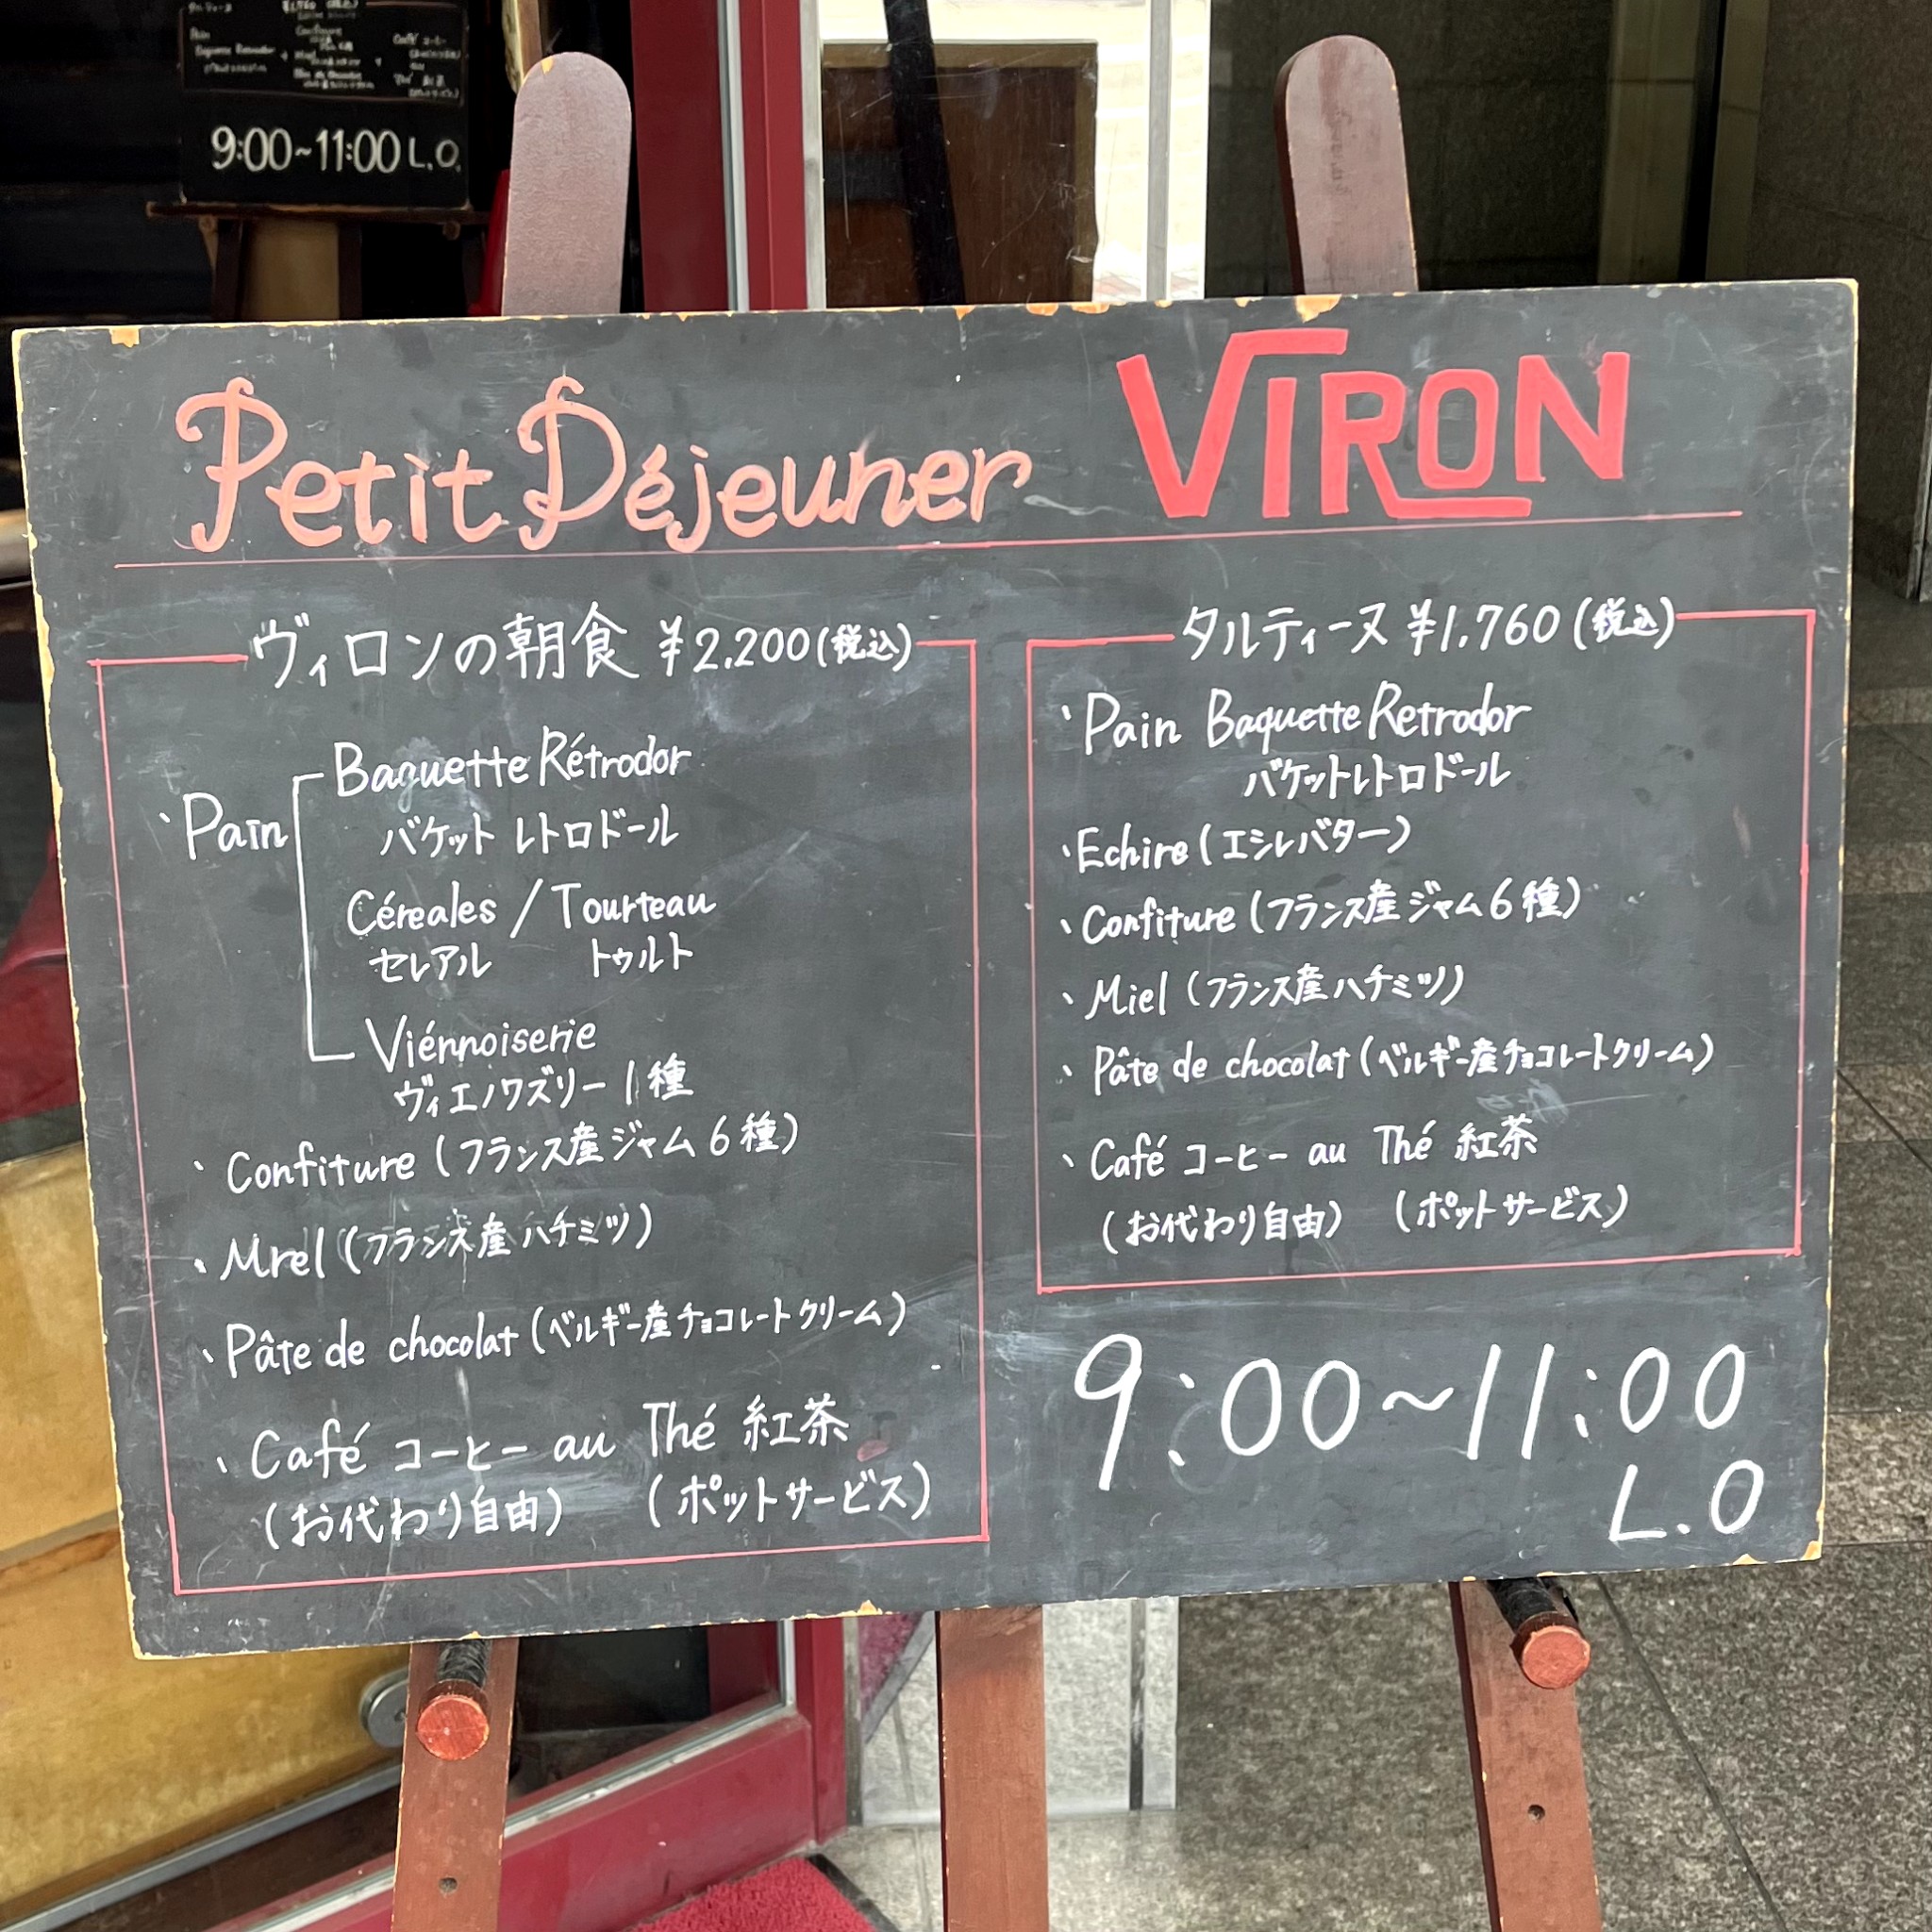 9:00~11:00 L.O.
Petit Déjeuner VIRON
ヴィロンの朝食 ¥2.200(税込)
Baguette Rétrodor
・Pain
バケット レトロドール
Céreales / Tourteau
セレアル トゥルト
Viénnoiserie
ヴィエノワズリー 1種
・Confiture (フランス産ジャム6種)
・Mrel (フランス産ハチミツ)
・Pâte de chocolat (ベルギー産チョコレートクリーム)
・Café コーヒー au Thé 紅茶
(お代わり自由) (ポットサービス)
タルティーヌ ¥1.760(税込)
・Pain Baquette Retrodor
バケットレトロドール
・Echire (エシレバター)
・Confiture (フランス産ジャム6種)
・Miel (フランス産ハチミツ)
・Pâte de chocolat (ベルギー産チョコレートクリーム)
・Café コーヒー au Thé 紅茶
(お代わり自由) (ポットサービス)
9:00~11:00
L.O